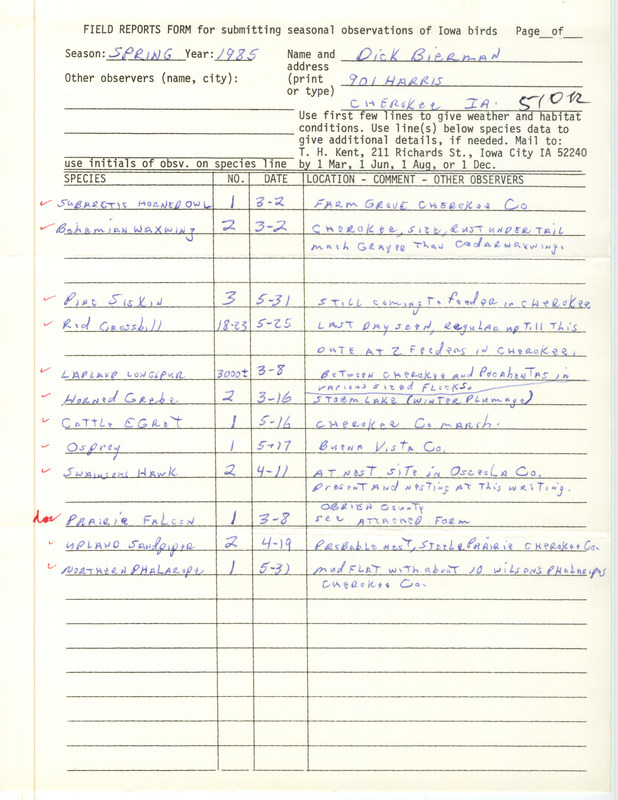 FIELD REPORTS FORM for submitting seasonal observations of Iowa birds Page__of__
Season: SPRING Year: 1985 Name and Dick Bierman
address
Other observers (name, city): (print 901 HARRIS
or type)
CHEROKEE IA. 51012
Use first few lines to give weather and habitat
conditions. Use line(s) below species data to
give additional details, if needed. Mail to:
T. H. Kent, 211 Richards St., Iowa City IA 52240
use initials of obsv. on species line by 1 Mar, 1 Jun, 1 Aug, or 1 Dec.
SPECIES NO. DATE LOCATION - COMMENT - OTHER OBSERVERS
✓ SUBARCTIC HORNED OWL 1 3-2 FARM GROVE CHEROKEE Co
✓ Bohemian Waxwing 2 3-2 CHEROKEE, SIZE, RUST UNDER TAIL
much Grayer Than Cedarwaxwing.
✓ Pine Siskin 3 5-31 Still coming To Feeder in CHEROKEE
✓ Red Crossbill 18-23 5-25 LAST DAY SEEN, Regular up Till This
DATE AT 2 Feeders in CHEROKEE.
✓ LAPLAND LONGSPUR 3000± 3-8 Between CHEROKEE and POCAHONTAS in
various sized Flocks.
✓ Horned Grebe 2 3-16 STORM LAKE (WINTER PLUMAGE)
✓ Cattle EGRET 1 5-16 CHEROKEE Co marsh.
✓ Osprey 1 5-17 BUENA VISTA Co.
✓ SWAINSONS HAWK 2 4-11 AT NEST SITE in OSCEOLA Co.
Present AND nesting AT This writing.
OBRIEN County
doc PRAIRIE FALCON 1 3-8 see ATTACHED Form
✓ UPLAND Sandpiper 2 4-19 Probable nest, STEELE PRAIRIE CHEROKEE Co.
✓ NORTHERN PHALAROPE 1 5-31 mud FLAT with about 10 WILSONS PHALAROPES
CHEROKEE Co.